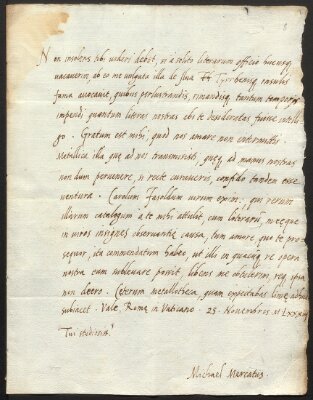 Non insolens tibi videri debet, si a soluto literarum officio hucusq.
vacaverim, ab eo me vulgata illa de
fama avocavit, quibus perlustrandis, rimandisq. tantum temporis
impendi quantum literas nostras abs te desideratas fuisse intelli
go. Gratum est mihi, quod nos amare non intermittis
Metallica illa quae ad nos transmisisti, quaeq. ad manus nostras
non dum pervenere, si recte curaveris, confido tandem esse
ventura. Carolum Fasoldum verum excepi, qui rerum
illarum catalogum a te mihi attulit, cum literarii, neque
in viros insignes observantiae causa, tum amore quo te pro
sequor, ita commendatum habeo ut illi in quacuq. re opera
nostra eum sublevare possit, libens me obtulerim, req. ipsa
non deero. Ceterum metallotheca, quam expectabas limae adhuc
subiacet. Vale, Romae in Vaticano. 25. Novembris
Tui studiosiss.
Michael Mercatus.